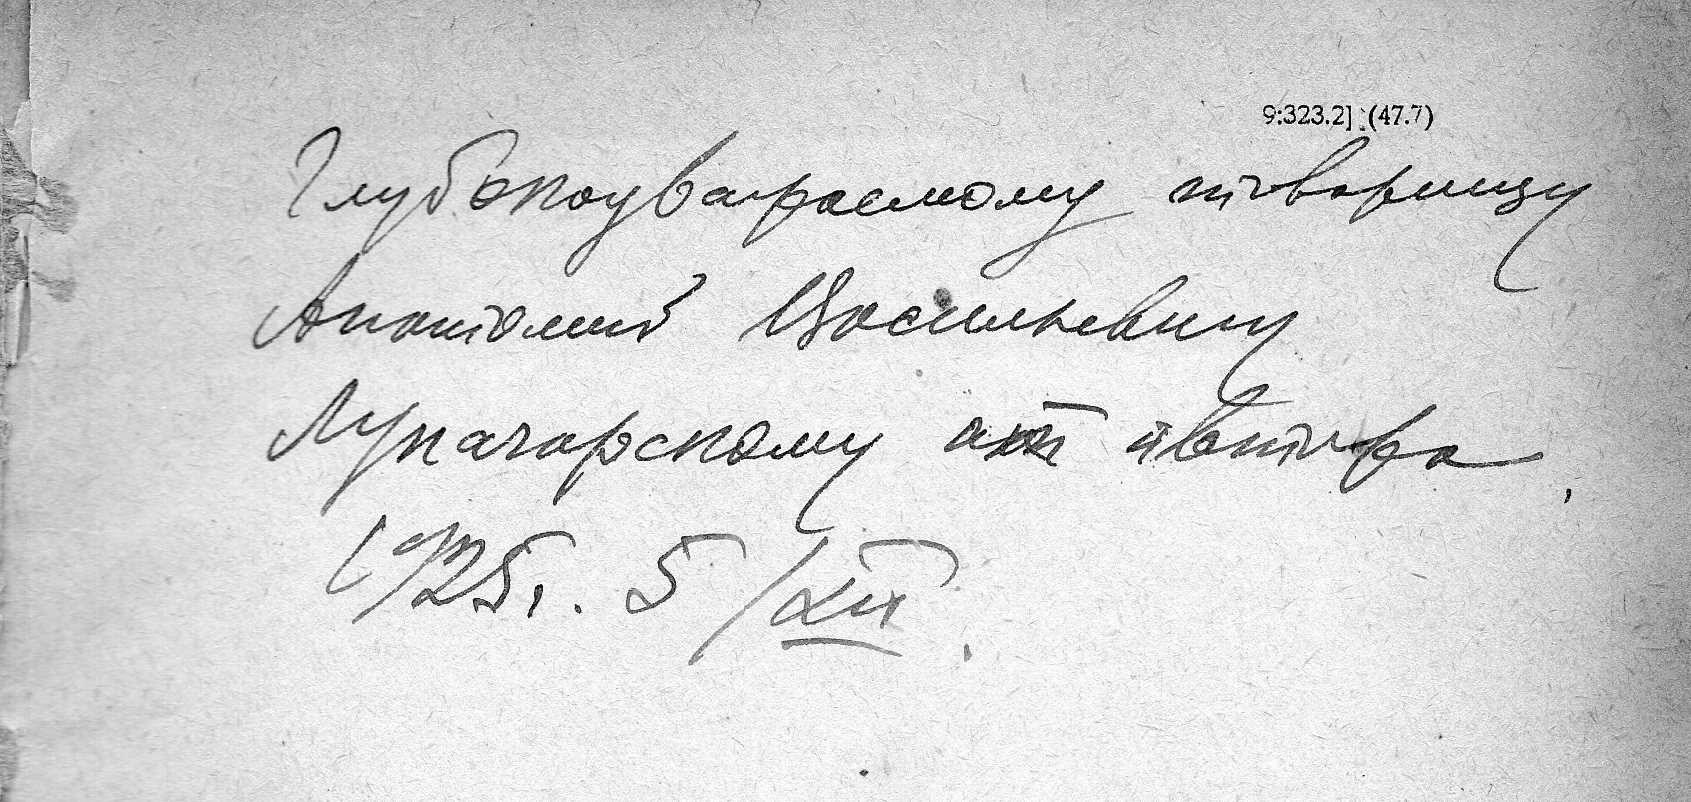 9:323.2] :(47.7)
Глубокоуважаемому товарищу
Анатолий Васильевичу
Луначарскому от автора.
1925 г. 5/XII.